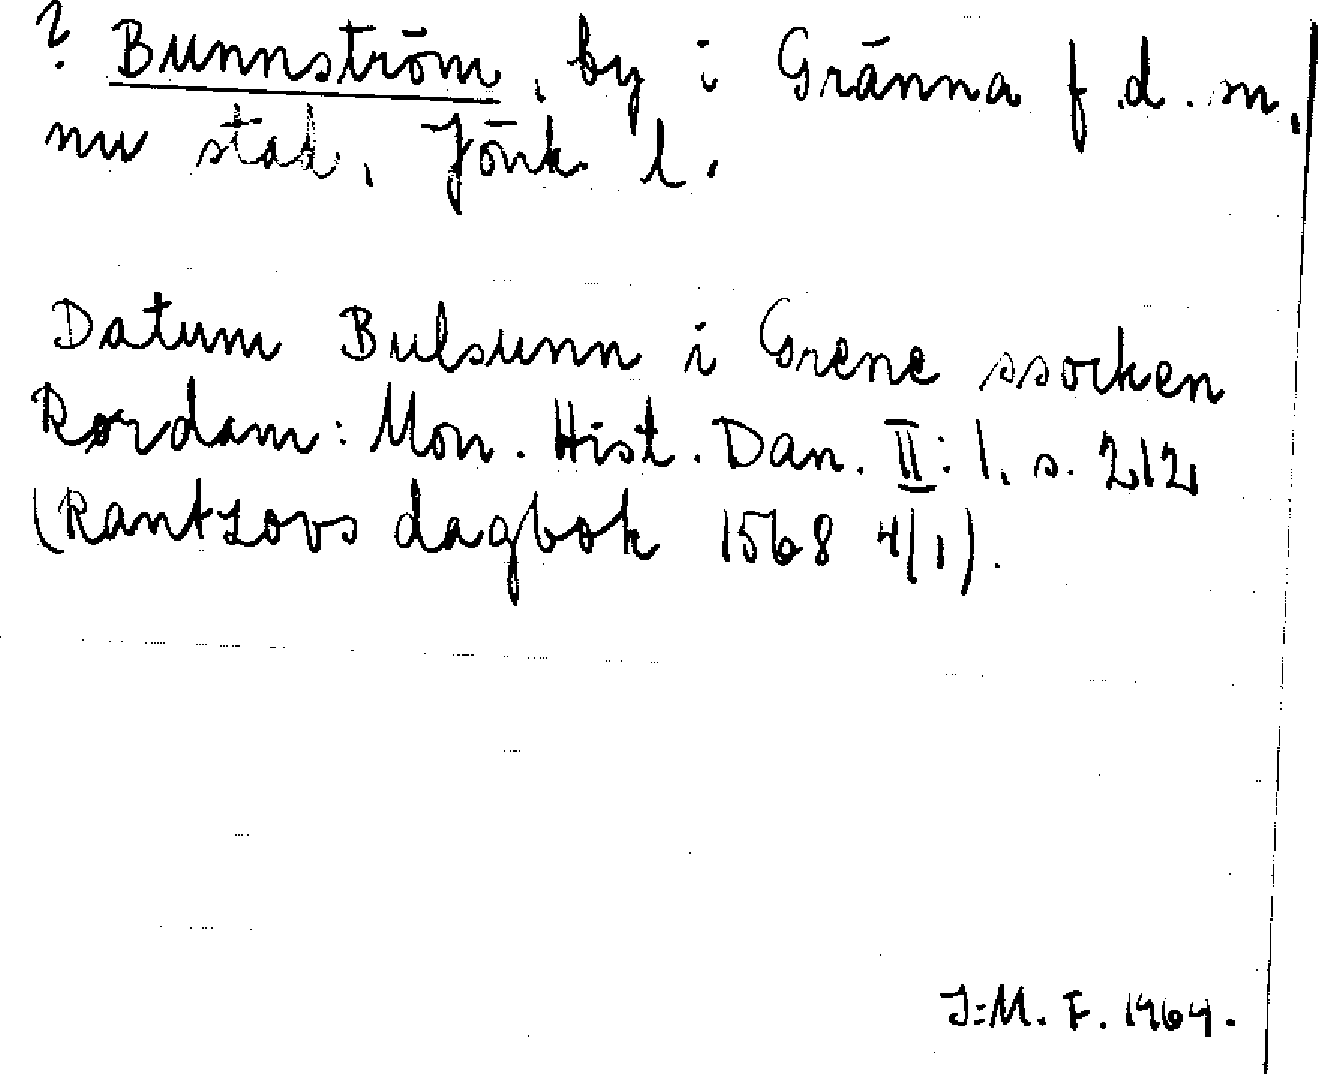 ? Bunnström, by i Gränna f.d. sn,
nu stad, Jönk. l.
Datum Bulsunn i Grene ssocken
Rørdam: Mon. Hist. Dan. II: 1. s. 212
(Rantzovs dagbok 1568 4/1).
J:M. F. 1964.